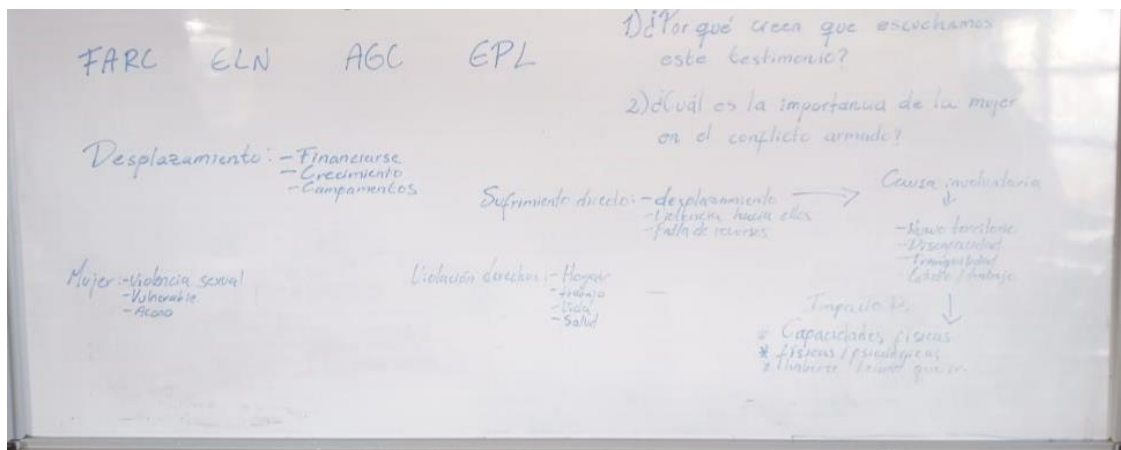 FARC ELN AGC EPL
1) ¿Por qué creen que escuchamos
este testimonio?
2) ¿Cuál es la importancia de la mujer
en el conflicto armado?
Desplazamiento: - Financiarse
- Crecimiento
- Campamentos
Sufrimiento directo: - desplazamiento
- Violencia hacia ellos
- Falta de recursos
Causa involuntaria
- Nuevo territorio
- Discapacidad
- Tranquilidad
- trabajo
Mujer: - Violencia sexual
- Vulnerable
- Acoso
Violación derechos: - Hogar
- trabajo
- Vida
- Salud
Impacto D.
* Capacidades físicas
* físicas / psicológicas